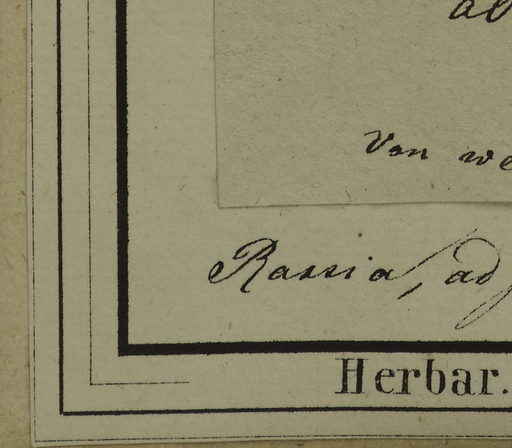 ab
Von we
Rassia, ad
Herbar.